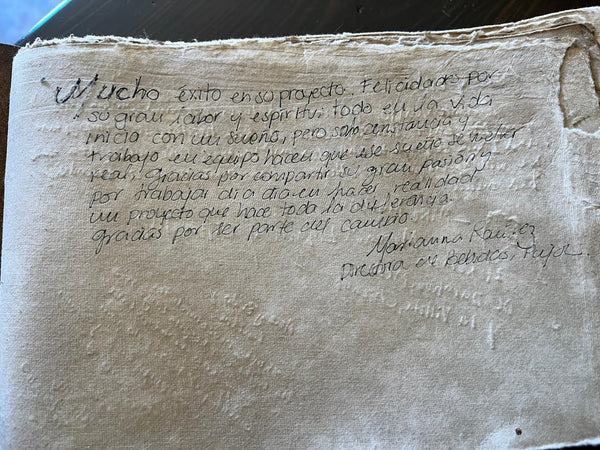 Mucho éxito en su proyecto. Felicidades por
su gran labor y espíritu; todo en la vida
inicia con un sueño, pero solo constancia y
trabajo en equipo hacen que ese sueño se vuelva
real. Gracias por compartir su gran pasión y
por trabajar día a día en hacer realidad
un proyecto que hace toda la diferencia.
gracias por ser parte del cambio.
Marianna
Directora de bebidas, Pujol.